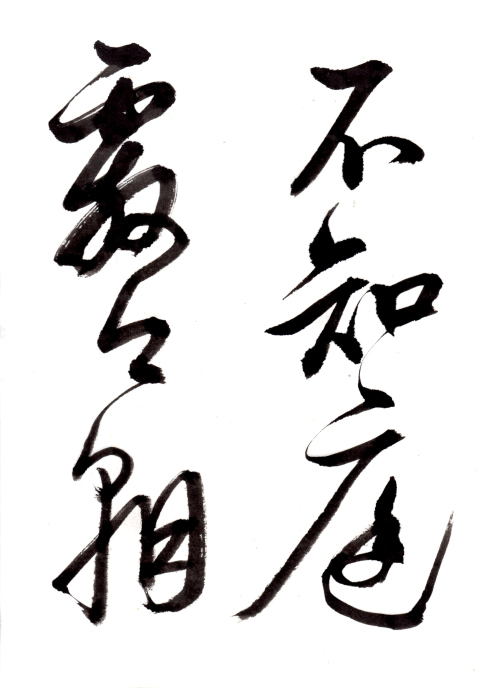 不知庭
霰今朝